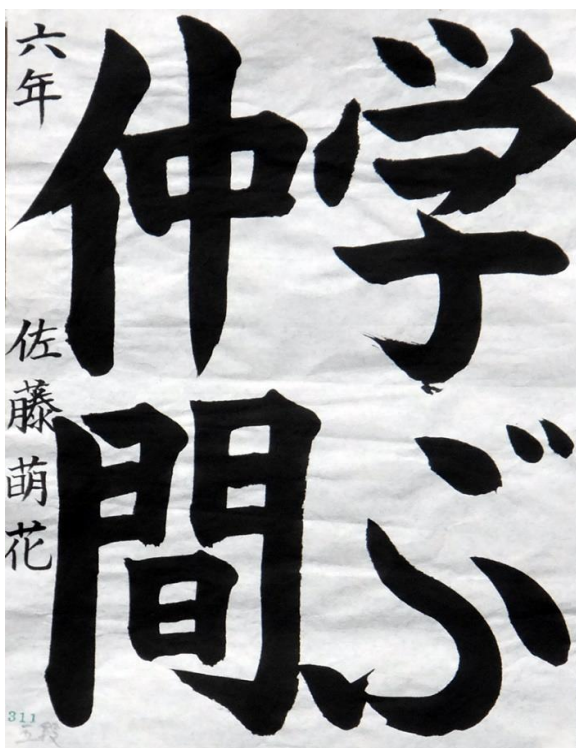 学ぶ
仲間
六年 佐藤萌花
311
五段